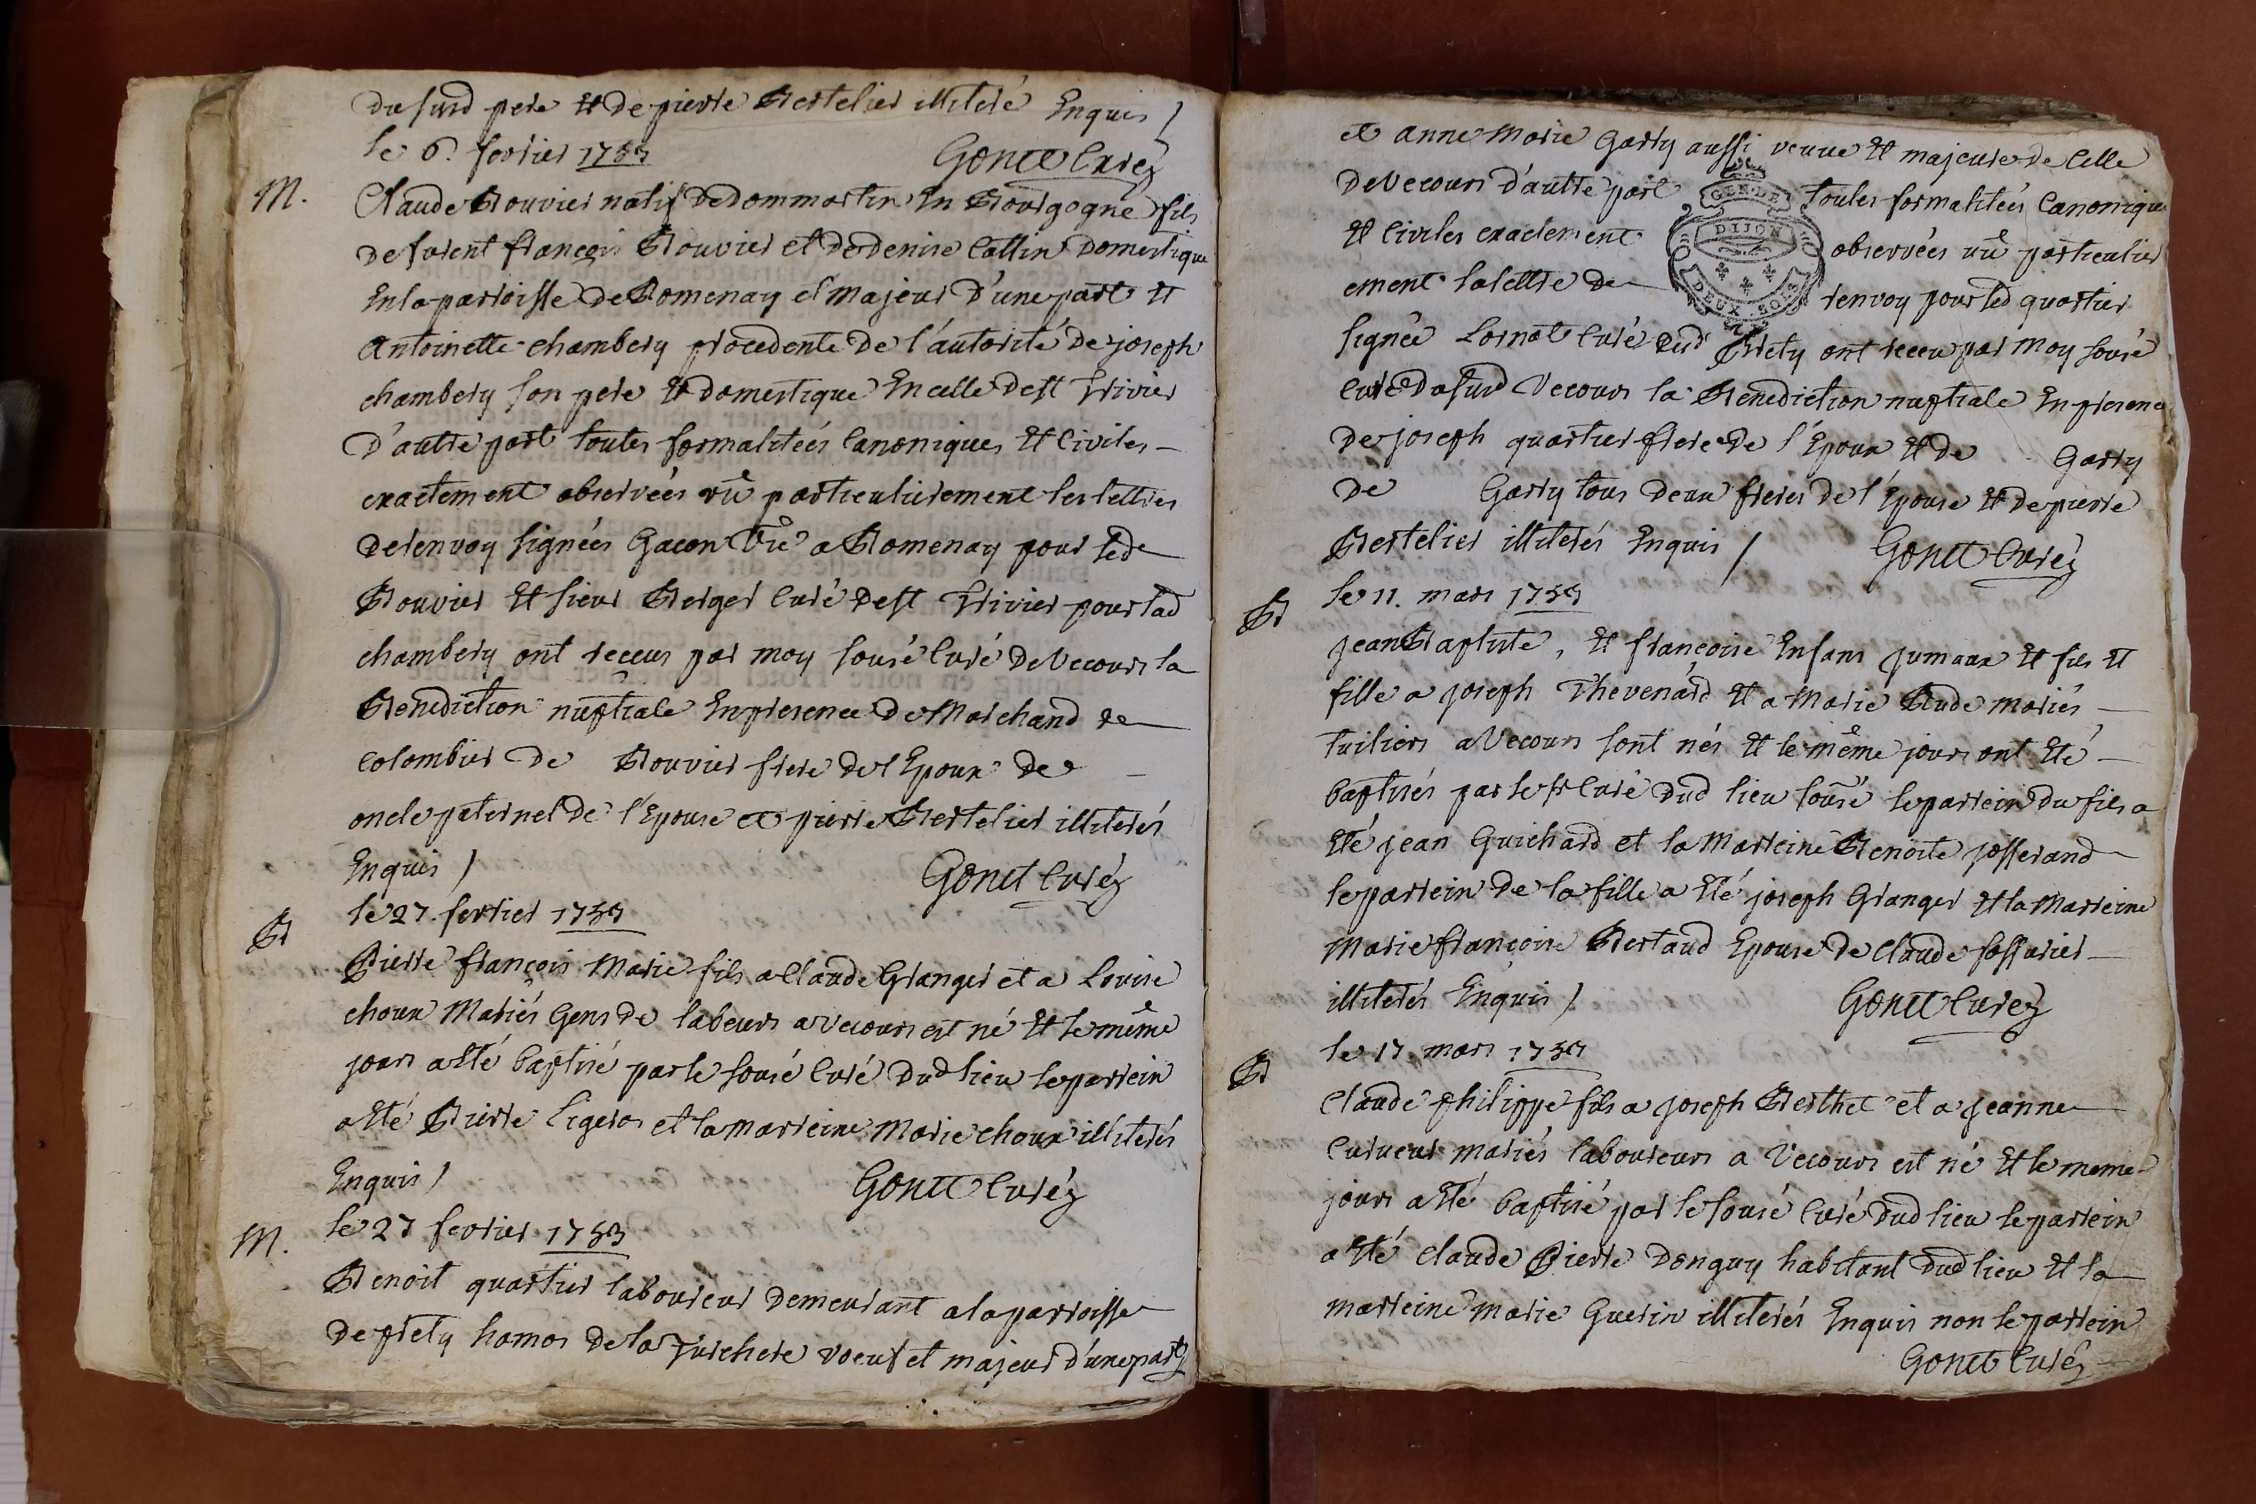 du susd pere et de pierre Bertelier illiteré Enquis /
le 6. fevrier 1753 Gonet Curéz
M. Claude Bouvier natif de dommartin En Bourgogne fils
de furent françois Bouvier et de denise Cattin Domestique
En la parroisse de Romenay et Majeur D'une part et
Antoinette chambery procedente De l'autorité de joseph
chambery son pere et domestique En celle de st Trivier
D'autre part toutes formalitées Canoniques et Civiles
exactement observées vû particulierement les lettres
de renvoy signées Gacon Vre a Romenay pour led
Bouvier et sieur Berger Curé de st Trivier pour lad
chambery ont receus par moy sousé Curé de Vecours la
Benediction nuptiale En presence de Marchand de
colombier de Bouvier frere de l'Epoux de
oncle paternel de l'Epouse et pierre Bertelier illiterés
Enquis / Gonet Curéz
le 27. fevrier 1753
B Pierre françois Marie fils a Claude Granger et a Louise
choux Mariés Gens de labeurs a vecours est né et le même
jours a Eté baptisé par le sousé Curé dud lieu le parrein
a Eté Pierre Ligeros et la marreine Marie choux illiterés
Enquis / Gonet Curéz
le 27 fevrier 1753
M. Benoit quartier laboureur demeurant a la parroisse
de prety hamos de la Turchere voeuf et majeur d'une part
et anne Marie Garry aussi veuve et majeure de Celle
De Vecours d'autre part toutes formalitées Canoniques
GEN. DE
DIJON
DEUX SOLS
et Civiles exactement observées vû particulier
ement la lettre de renvoy pour led quartier
signée Lornot Curé dud Prety ont receu par moy sousé
curé du susd Vecours la Benediction nuptiale En presence
de joseph quartier frere de l'Epoux et de Garry
de Garry tous deux freres de l'Epouse et de pierre
Bertelier illiterés Enquis / Gonet Curéz
le 11. mars 1753
B jean Baptiste, et françoise Enfans jumaux et fils et
fille a joseph Thevenard et a Marie Aude mariés
tuiliers a Vecours sont nés et le même jours ont Eté
baptisés par le sr Curé dud lieu sousé le parrein du fils a
Eté jean Guichard et la Marreine Benoite josserand
le parrein de la fille a Eté joseph Granger et la Marreine
Marie françoise Bertaud Epouse de Claude
illiterés Enquis / Gonet Curéz
le 17 mars 1753
B Claude philippe fils a joseph Berthet et a jeanne
mariés laboureurs a Vecours est né et le meme
jours a Eté baptisé par le sousé Curé dud lieu le parrein
a Eté Claude Pierre Donguy habitant dud lieu et la
marreine Marie Guerin illiterés Enquis non le parrein
Gonet Curéz